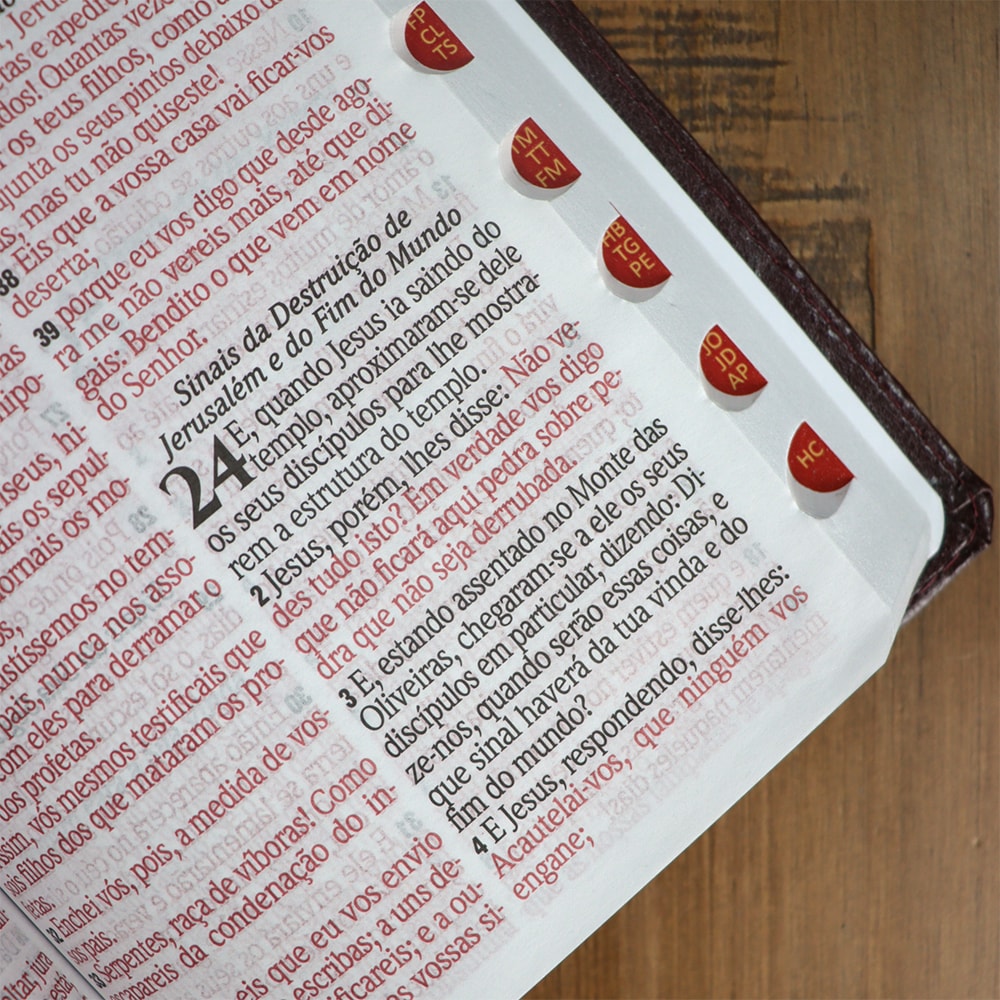 tas
mpo-
iseus, hi-
ais os sepul-
ornais os mo-
istíssemos no tem-
pais, nunca nos asso-
com eles para derramar o
dos profetas.
assim, vós mesmos testificais que
sois filhos dos que mataram os pro-
fetas.
32 Enchei vós, pois, a medida de vos
sos pais.
33 Serpentes, raça de víboras! Como
escapareis da condenação do in-
eis que eu vos envio
escribas; a uns de-
ificareis; e a ou-
s vossas si-
, Jeru
tas e apedre
dos! Quantas vezes
r os teus filhos, como a
ajunta os seus pintos debaixo d
as, mas tu não quiseste!
38 Eis que a vossa casa vai ficar-vos
deserta;
39 porque eu vos digo que desde ago-
ra me não vereis mais, até que di-
gais: Bendito o que vem em nome
do Senhor.
Sinais da Destruição de
Jerusalém e do Fim do Mundo
24 E, quando Jesus ia saindo do
templo, aproximaram-se dele
os seus discípulos para lhe mostra-
rem a estrutura do templo.
2 Jesus, porém, lhes disse: Não ve-
des tudo isto? Em verdade vos digo
que não ficará aqui pedra sobre pe-
dra que não seja derrubada.
3 E, estando assentado no Monte das
Oliveiras, chegaram-se a ele os seus
discípulos em particular, dizendo: Di-
ze-nos, quando serão essas coisas, e
que sinal haverá da tua vinda e do
fim do mundo?
4 E Jesus, respondendo, disse-lhes:
Acautelai-vos, que ninguém vos
engane;
FP
CL
TS
TM
TT
FM
HB
TG
PE
JO
JD
AP
HC